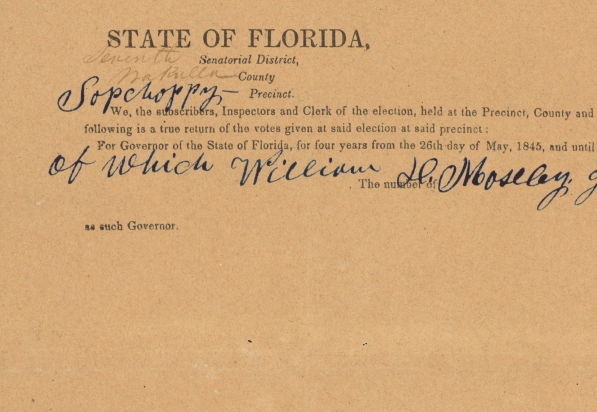 STATE OF FLORIDA,
Seventh Senatorial District,
Wakulla County
Sopchoppy Precinct.
We, the subscribers, Inspectors and Clerk of the election, held at the Precinct, County and
following is a true return of the votes given at said election at said precinct :
For Governor of the State of Florida, for four years from the 26th day of May, 1845, and until
of which William D. Moseley,
The number of
as such Governor.